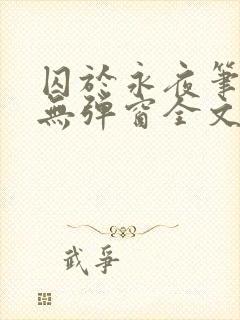 囚於永夜筆
無彈窗全文
武爭